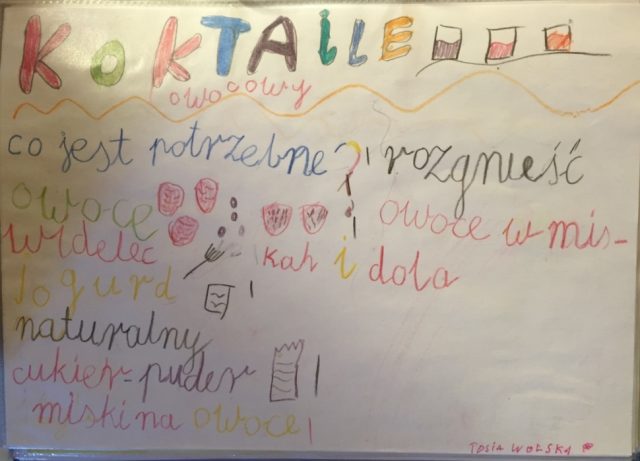 KoKTAiLE
owocowy
co jest potrzebne?
owocę
widelec
Jogurd
naturalny
cukier-puder
miski na owoce
rozgnieść
owoce w mis-
kah i dola
TOSIA WOLSKA